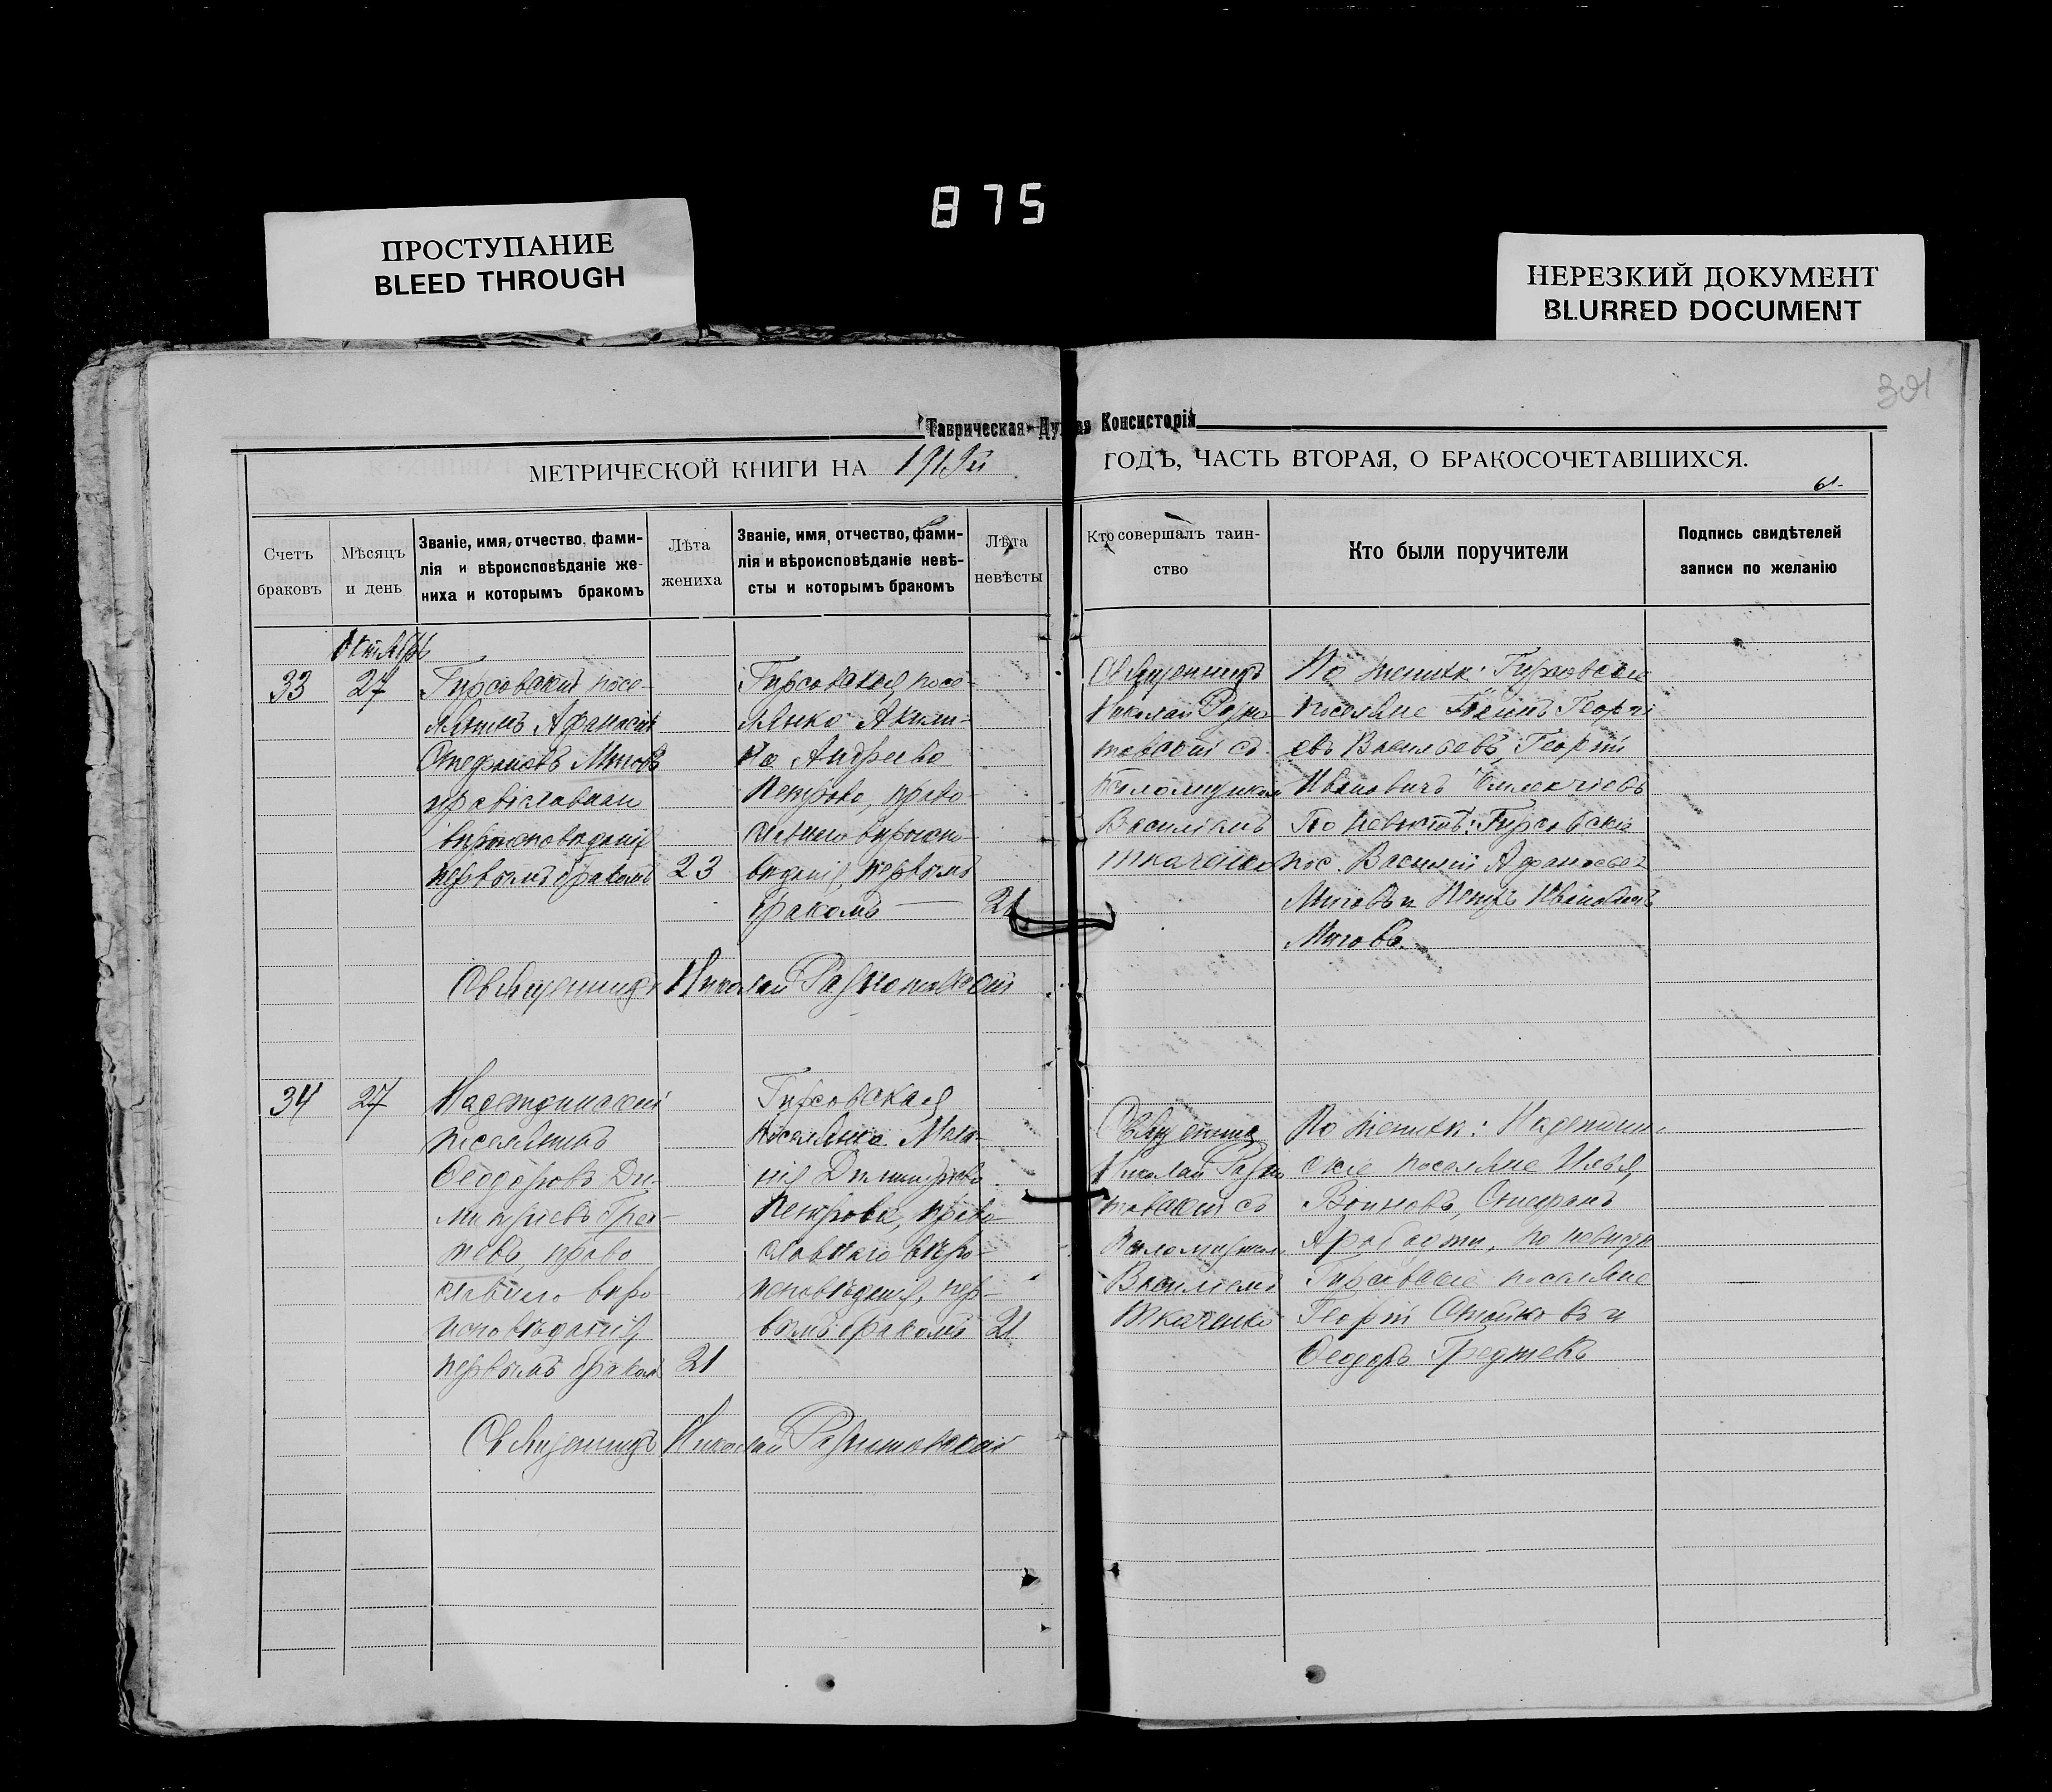 875
ПРОСТУПАНИЕ
BLEED THROUGH
НЕРЕЗКИЙ ДОКУМЕНТ
BLURRED DOCUMENT
301
Таврическая Ду ая Консисторія
МЕТРИЧЕСКОЙ КНИГИ НА 1919й ГОДЪ, ЧАСТЬ ВТОРАЯ, О БРАКОСОЧЕТАВШИХСЯ.
Счетъ
браковъ
Мѣсяцъ
и день
Званіе, имя, отчество, фами-
лія и вѣроисповѣданіе же-
ниха и которымъ бракомъ
Лѣта
жениха
Званіе, имя, отчество, фами-
лія и вѣроисповѣданіе невѣ-
сты и которымъ бракомъ
Лѣта
невѣсты
Кто совершалъ таин-
ство
Кто были поручители
Подпись свидѣтелей
записи по желанію
Октябрь
33
27
Гирсовскій посе-
лянинъ Афанасій
Стефановъ Митовъ
православнаго
вѣроисповѣданія
первымъ бракомъ
23
Гирсовская посе-
лянка Акили-
на Андреева
Петрова, право-
славнаго вѣроиспо-
вѣданія, первымъ
бракомъ
21
Священникъ
Николай Разно-
товскій съ
псаломщикомъ
Василіемъ
Ткаченко
По женихѣ: Гирсовскіе
поселяне Георгі
евъ Васильевъ, Георгій
Ивановичъ
По невѣстѣ: Гирсовскіе
пос. Василій Афанасьев
Митовъ и Петръ Ивановичъ
Митовъ.
Священникъ Николай Разнотовскій
34
27
Надеждинскій
поселянинъ
Ѳеодоровъ Ди-
митріевъ Гред-
жевъ, право
славнаго вѣро-
исповѣданія
первымъ бракомъ
21
Гирсовская
поселянка Мела-
нія Димитріева
Петрова, право-
славнаго вѣро-
исповѣданія, пер-
вымъ бракомъ
21
Священникъ
Николай Разно
товскій съ
псаломщикомъ
Василіемъ
Ткаченко
По женихѣ: Надеждин-
скіе поселяне Илья
Воиновъ, Стефанъ
Арабаджи, по невѣстѣ
Гирсовскіе поселяне
Георгій Стойковъ и
Ѳеодоръ Греджевъ
Священникъ Николай Разнотовскій